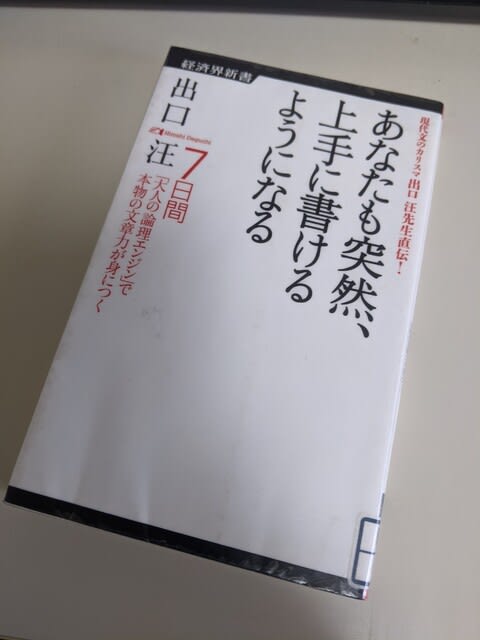 経済界新書
現代文のカリスマ 出口 汪先生直伝!
あなたも突然、
上手に書ける
ようになる
出口 汪
Hiroshi Deguchi
7日間
「大人の「論理エンジン」で
本物の文章力が身につく